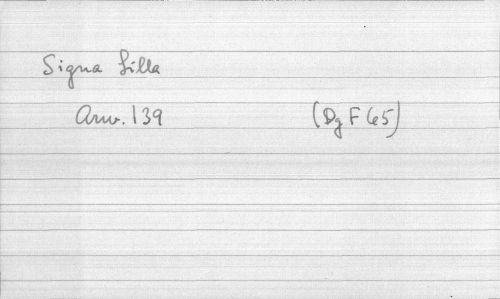 Signa Lilla
Arw. 139 (Dg F 65)